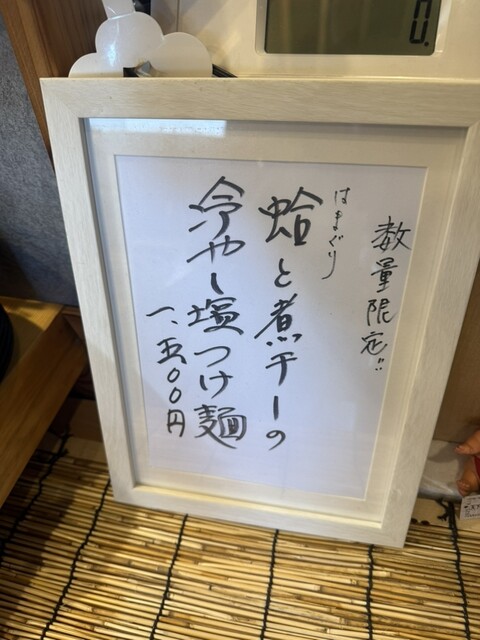 数量限定!!
はまぐり
蛤と煮干しの
冷やし塩つけ麺
一、五〇〇円
0.